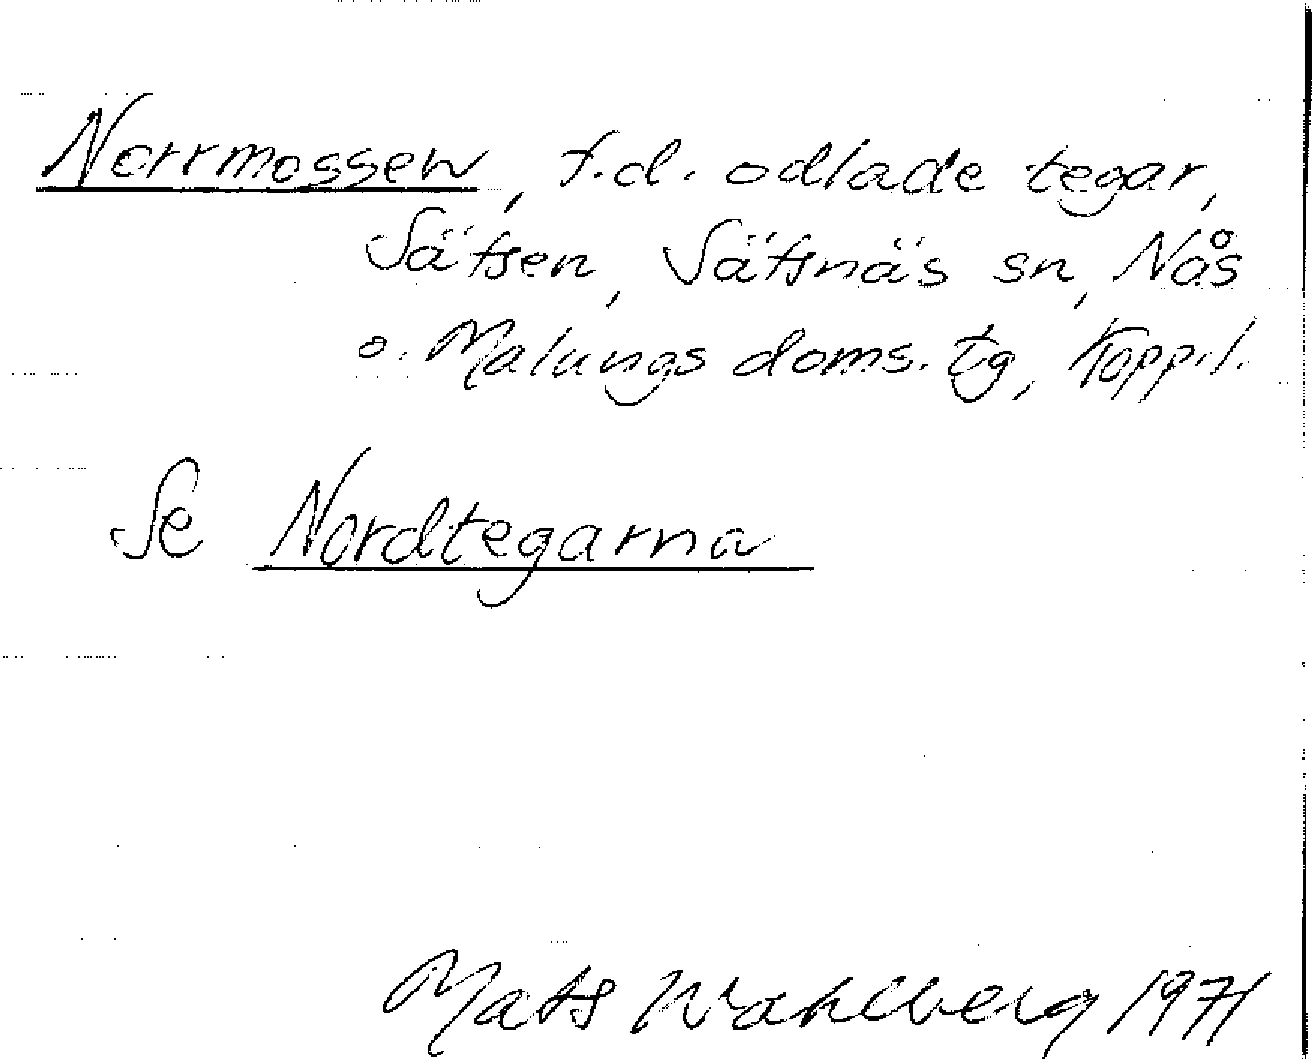 Norrmossen, f.d. odlade tegar,
Säfsen, Säfsnäs sn, Nås
o. Malungs doms. tg, Kopp.l.
Se Nordtegarna
Mats Wahlberg 1971